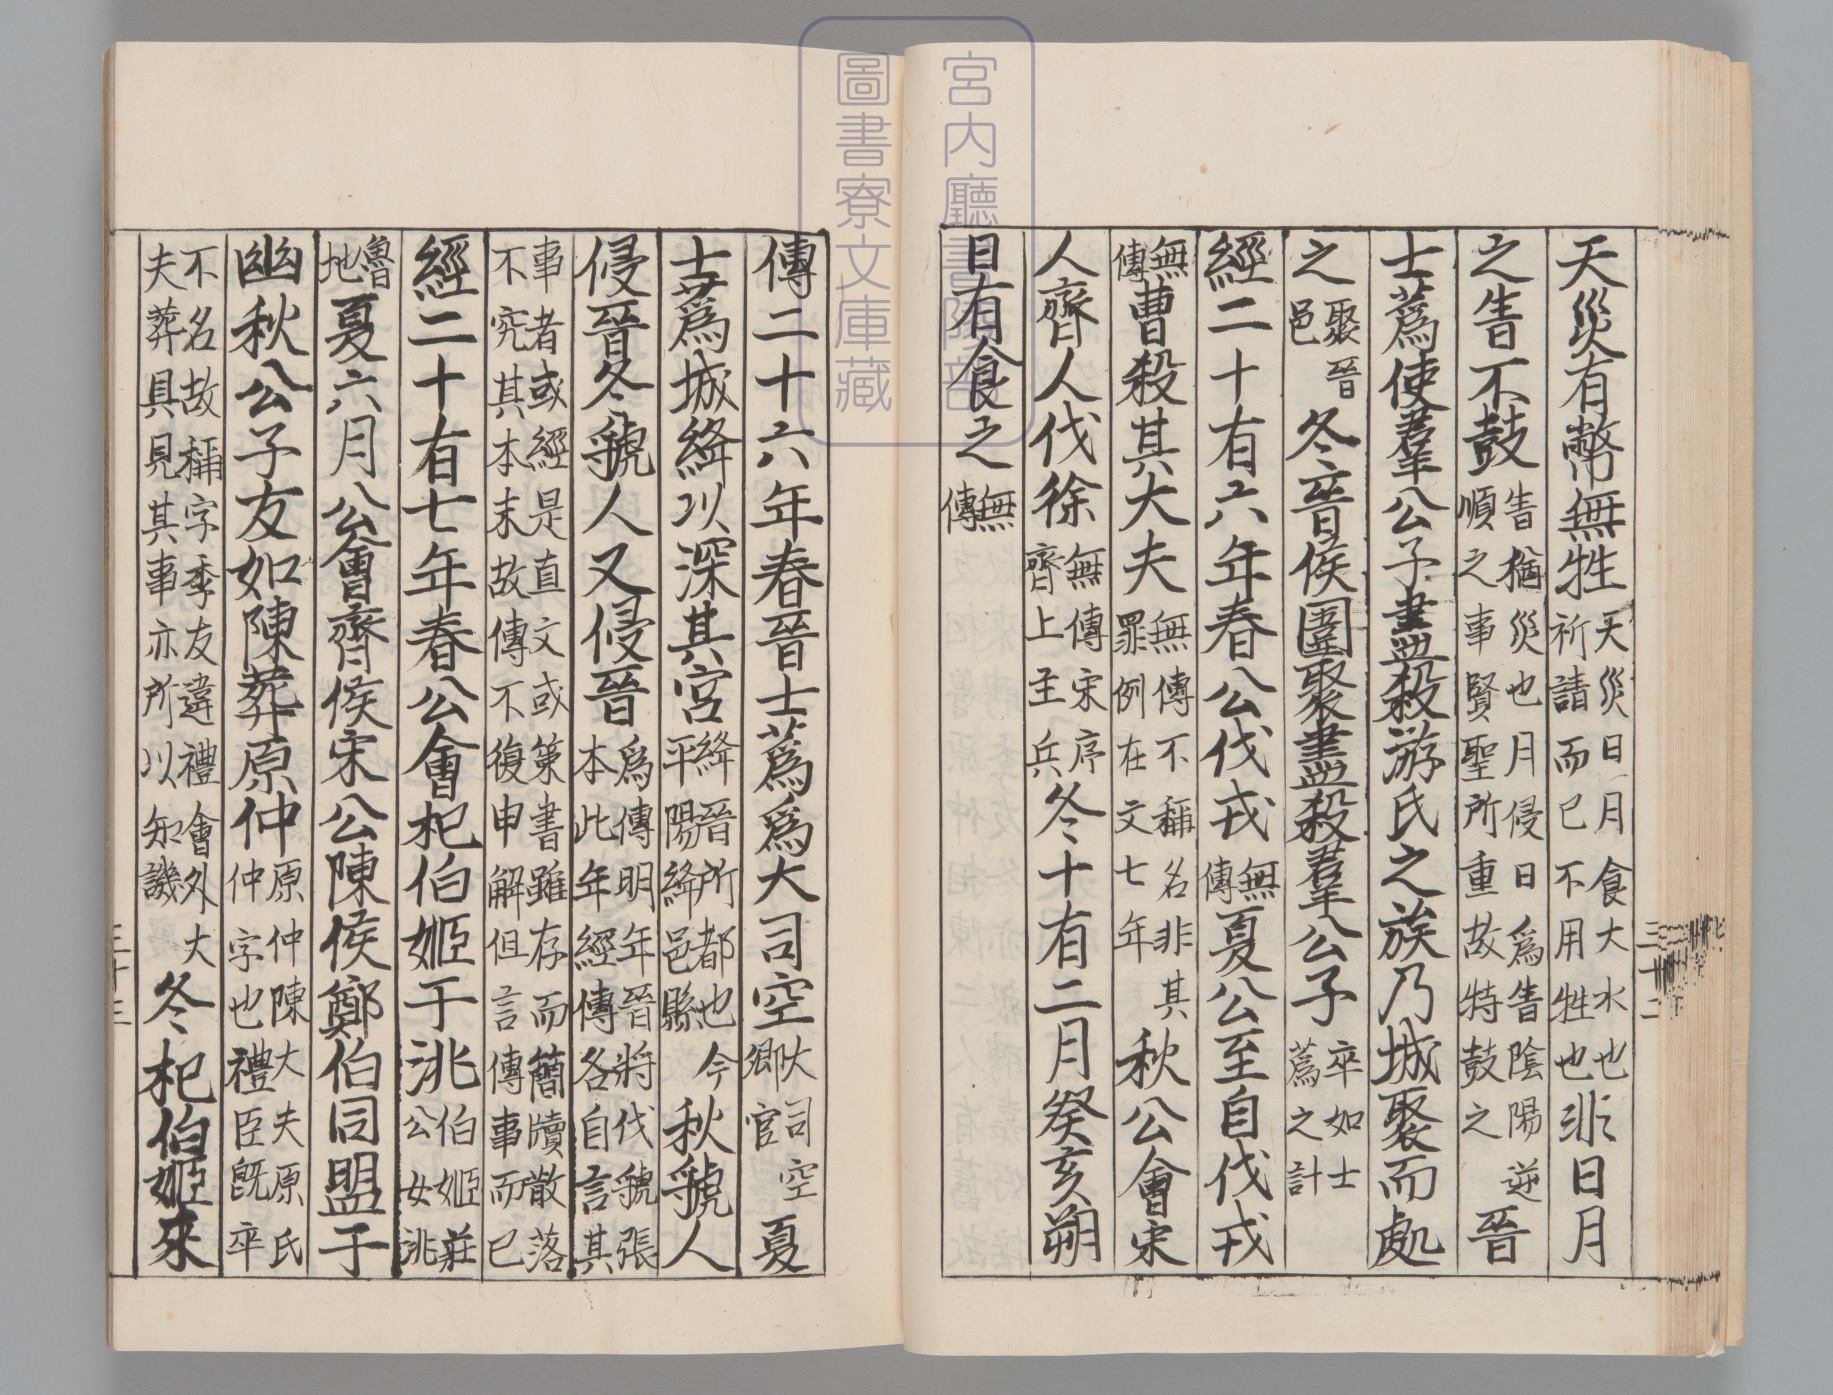 天災有幣無牲天災日月食大水也祈請而已不用牲也非日月
之眚不鼓眚猶災也月侵日爲眚陰陽逆順之事賢聖所重故特鼓之晉
士蔿使羣公子盡殺游氏之族乃城聚而處
之聚晉邑冬晉侯圍聚盡殺羣公子卒如士蔿之計
經二十有六年春公伐戎無傳夏公至自伐戎
無傳曹殺其大夫無傳不稱名非其罪例在文七年秋公會宋
人齊人伐徐無傳宋序齊上主兵冬十有二月癸亥朔
日有食之無傳
傳二十六年春晉士蔿爲大司空大司空卿官夏
士蔿城絳以深其宮絳晉所都也今平陽絳邑縣秋虢人
侵晉冬虢人又侵晉爲傳明年晉將伐虢張本此年經傳各自言其
事者或經是直文或策書雖存而簡牘散落不究其本末故傳不復申解但言傳事而已
經二十有七年春公會杞伯姬于洮伯姬莊公女洮
魯地夏六月公會齊侯宋公陳侯鄭伯同盟于
幽秋公子友如陳葬原仲原仲陳大夫原氏仲字也禮臣既卒
不名故稱字季友違禮會外大夫葬具見其事亦所以知譏冬杞伯姬來
三十二
三十三
宮内廳書陵部
圖書寮文庫藏